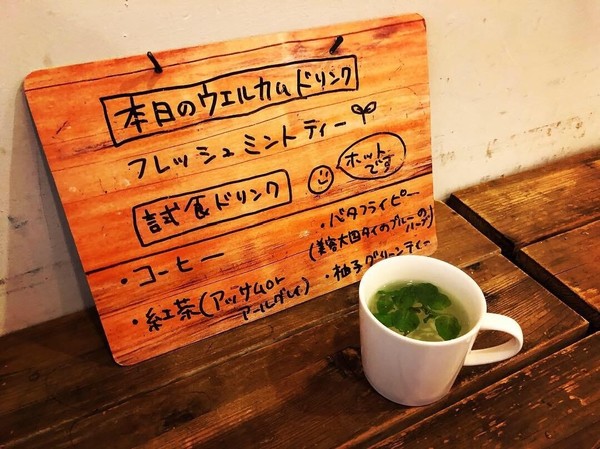 本日のウェルカムドリンク
フレッシュミントティー
試食ドリンク
ホット
です
・コーヒー
・紅茶(アッサムor
アールグレイ)
・バタフライピー
(美容大国タイのブルーの
ハーブ)
・柚子グリーンティー